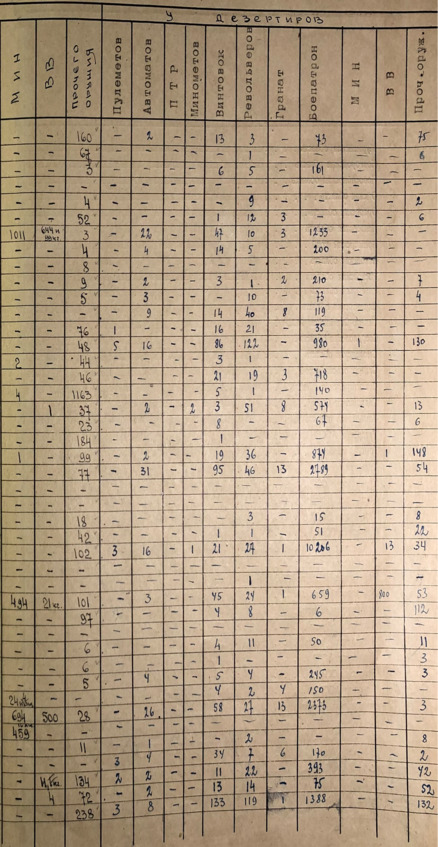 У ДЕЗЕРТИРОВ
МИН ВВ ПРОЧЕГО ОРУЖИЯ Пулеметов Автоматов ПТР Минометов Винтовок Револьверов Гранат Боепатрон МИН ВВ Проч.оруж.
- - 160 2 - - 13 3 73 - 75
- - 67 - - - - 1 - - - - 8
- - 3 - - - 6 5 - 161 - -
- - - - - - - - - - - - -
- - 4 - - - - - 9 - - - - 2
- - 52 - - - - 1 12 3 - - - 6
1011 3 - 22 - - 47 10 3 1233 - - -
- - 4 - 4 - - 14 5 - 200 - -
- - 8 - - - - - - - - - -
- - 9 - 2 - - 3 1 2 210 - - 7
- - 5 - 3 - - - 10 - 73 - - 4
- - 9 - - 14 40 8 119 - -
- - 76 1 - - - 16 21 - 35 - - -
- - 48 5 16 - - 86 122 - 980 1 - 130
2 - 44 - - - - 3 1 - - - - -
- - 46 - - - - 21 19 3 718 - - -
4 - 1163 - - - - 5 1 - 140 - - -
- 1 37 - 2 - 2 3 51 8 574 - - 13
- - 23 - - - - 8 - - 67 - - 6
- - 184 - - - - 1 - - - - - -
1 - 99 - 2 - - 19 36 - 874 - 1 148
- - 77 - 31 - - 95 46 13 2789 - - 54
- - - - - - - - - - - - - -
- - - - - - - - - - - - - -
- - 18 - - - - - 3 - 15 - - 8
- - 42 - - - - 1 1 - 51 - - 22
- - 102 3 16 - 1 21 27 1 10206 - 13 34
- - - - - - - - - - - - -
- - - - - - - - 1 - - - - -
494 21 кг. 101 - 3 - - 45 24 1 659 - 800 53
- - 97 - - - - 4 8 - 6 - - 112
- - - - - - - - - - - - -
- - 6 - - - - 4 11 - 50 - - 11
- - 6 - - - - 1 - - - - - 3
- - 5 - 4 - - 5 4 - 245 - - 3
- - - - - - - 4 2 4 150 - -
694 500 28 - 26 - - 58 27 13 2373 - - 3
459 - - - - - - - - - - - -
- - 11 - 1 - - - 2 - - - - 8
- - - 3 4 - - 34 7 6 170 - - 2
- 134 2 2 - - 11 22 - 393 - - 42
- 4 72 - 2 - - 13 14 - 75 - - 52
- - 238 3 8 - - 133 119 1 1388 - - 132